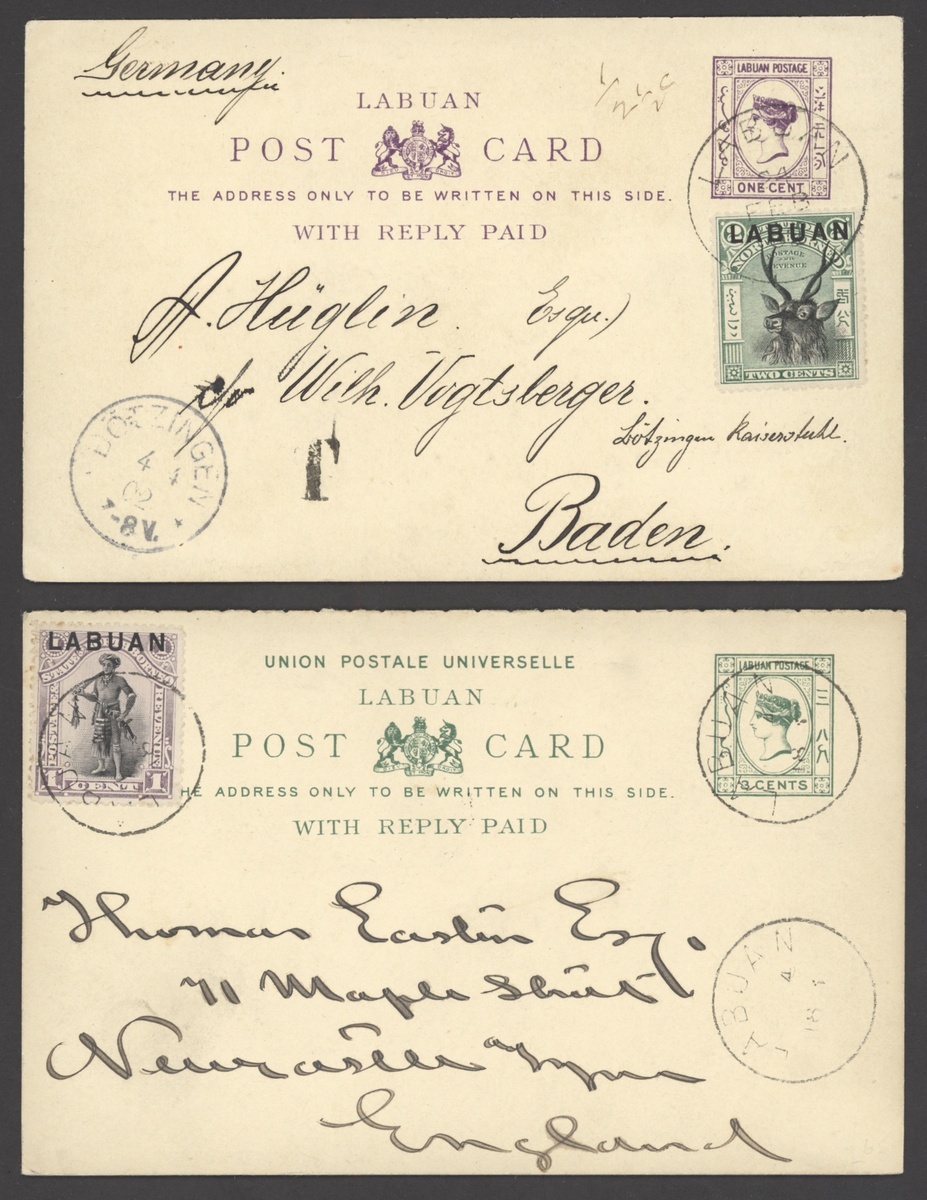 Germany.
LABUAN
POST CARD
THE ADDRESS ONLY TO BE WRITTEN ON THIS SIDE.
WITH REPLY PAID
LABUAN POSTAGE
ONE CENT
LABUAN
FEB
LABUAN
POSTAGE
AND
REVENUE
TWO CENTS
A. Hüglin. Esqu.)
c/o Wilh. Vogtsberger.
Bötzingen Kaiserstuhl.
Baden.
BÖTZINGEN
4
4
7-8V.
T
LABUAN
1 CENT 1
UNION POSTALE UNIVERSELLE
LABUAN
POST CARD
HE ADDRESS ONLY TO BE WRITTEN ON THIS SIDE.
WITH REPLY PAID
LABUAN POSTAGE
三八尺
3 CENTS
BUAN
Thomas Eastin Esq.
71 Maple Street
Newcastle a/Tyne
England
BUAN
4